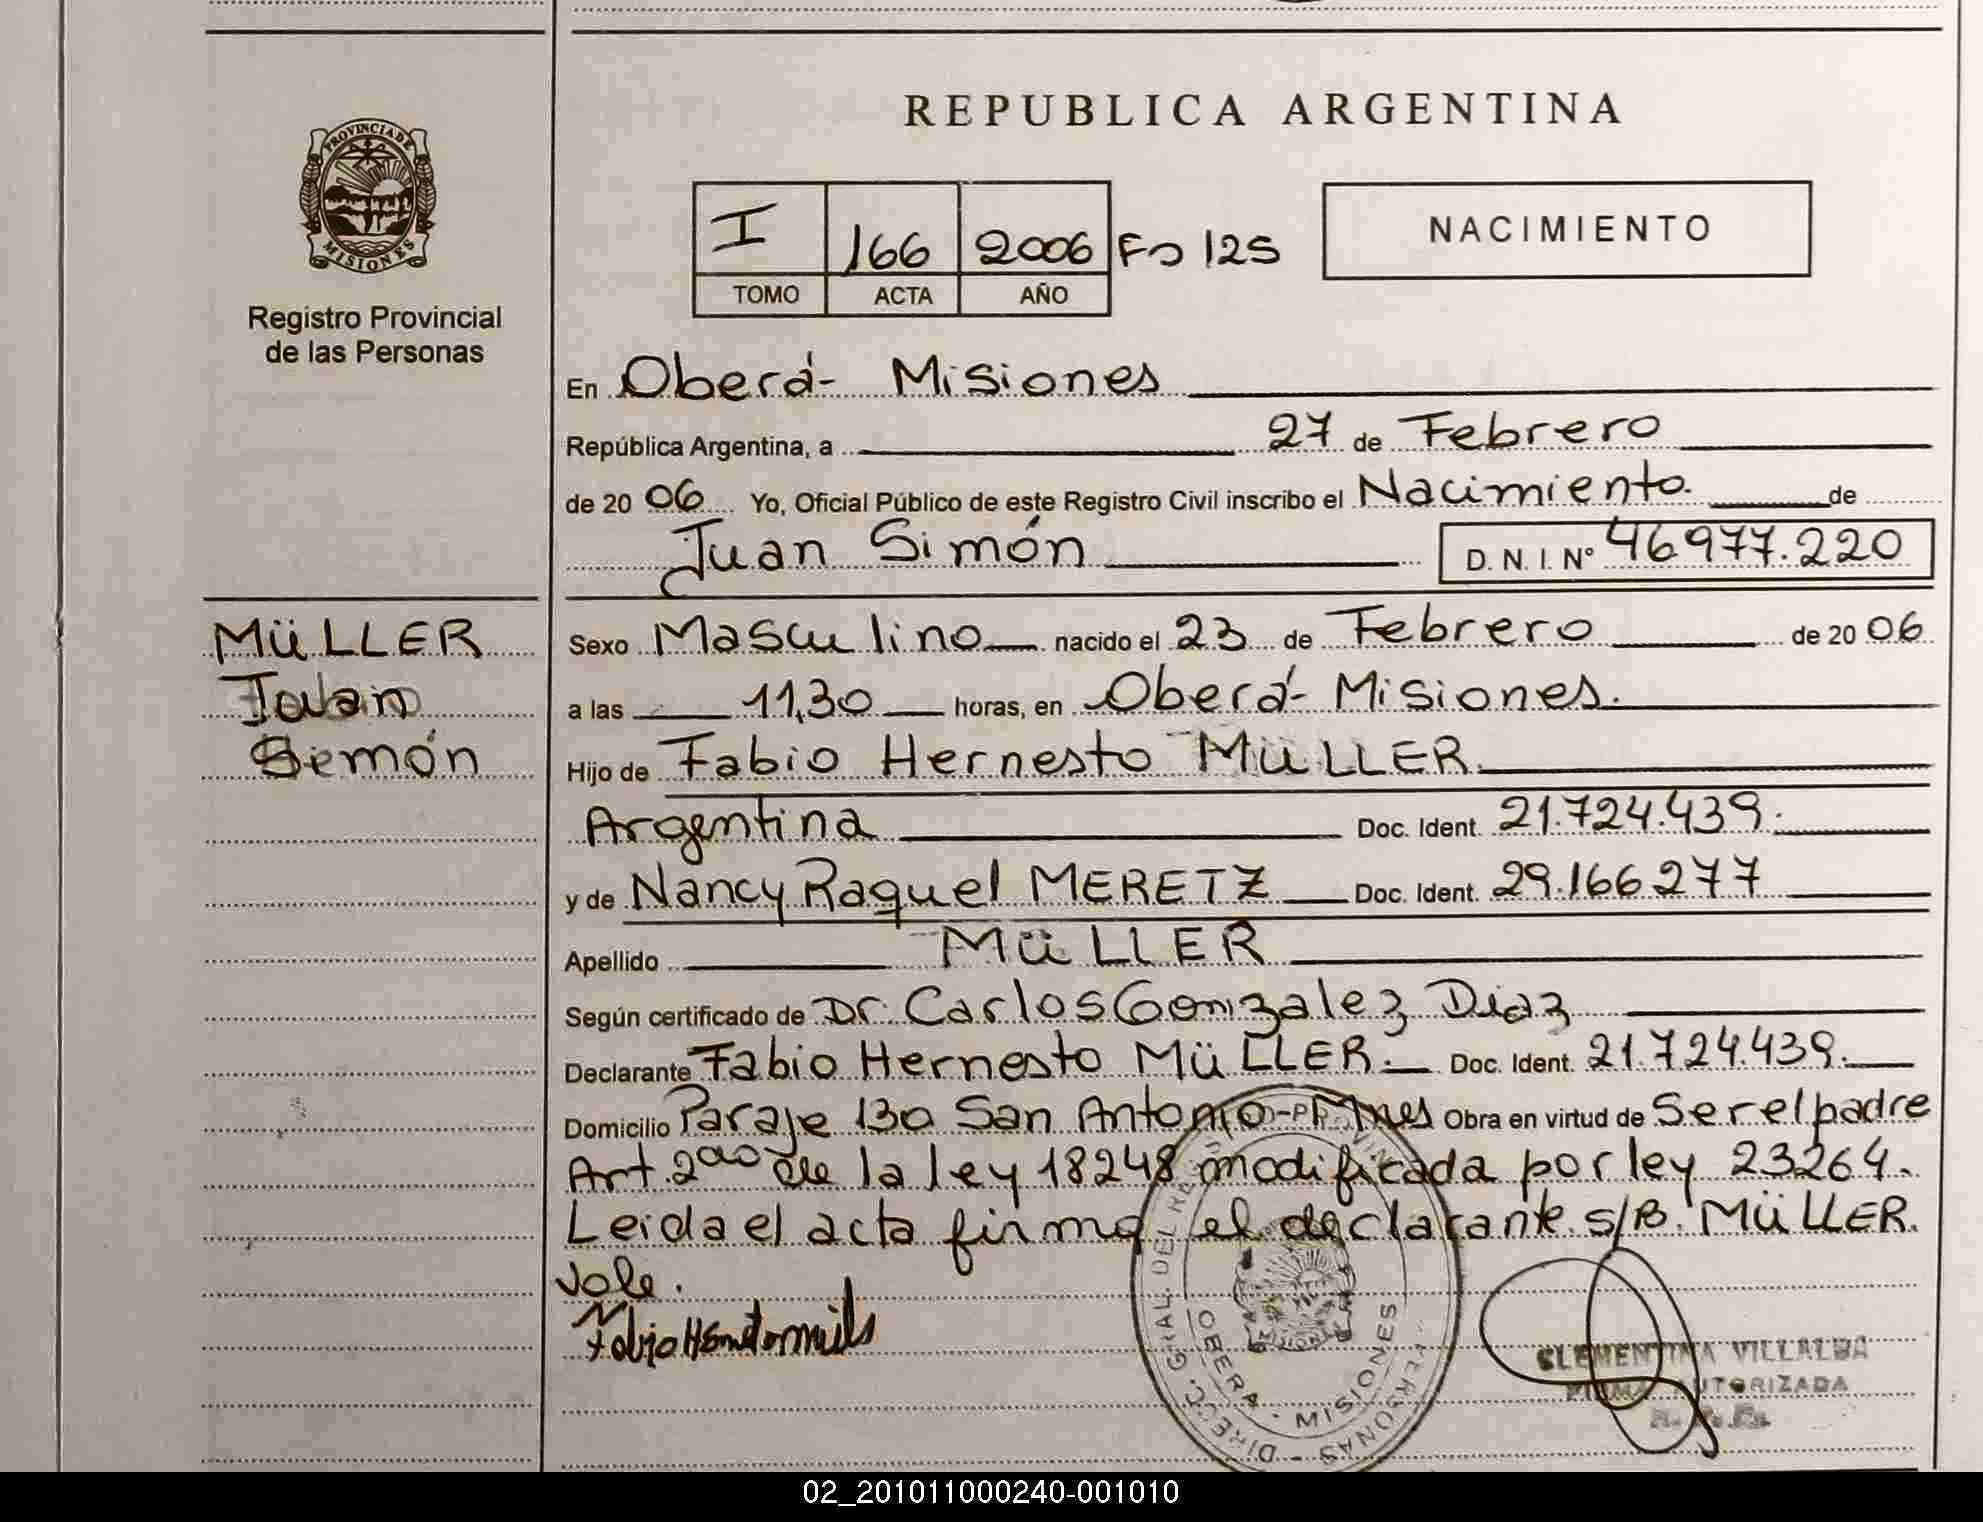 REPUBLICA ARGENTINA
PROVINCIA DE
MISIONES
Registro Provincial
de las Personas
I 166 2006 Fo 125
TOMO ACTA AÑO
NACIMIENTO
En Oberá- Misiones
República Argentina, a 27 de Febrero
de 2006 Yo, Oficial Público de este Registro Civil inscribo el Nacimiento. de
Juan Simón D. N. I. Nº 46977.220
MüLLER
Juan
Simón
Sexo Masculino nacido el 23 de Febrero de 2006
a las 11,30 horas, en Oberá- Misiones.
Hijo de Fabio Hernesto MüLLER
Argentina Doc. Ident. 21.724.439.
y de Nancy Raquel MERETZ Doc. Ident. 29.166277
Apellido MüLLER
Según certificado de Dr. Carlos Gonzalez Diaz
Declarante Fabio Hernesto MüLLER. Doc. Ident. 21.724.439.
Domicilio Paraje 130 San Antonio- Mnes Obra en virtud de Ser el padre
Art. 2do de la ley 18248 modificada por ley 23264.
Leida el acta firma el declarante. s/B. MüLLER.
Vale.
DIRECC. GRAL. DEL PERSONAS
OBERA - MISIONES
CLEMENTINA VILLALBA
FIRMA AUTORIZADA
02_201011000240-001010